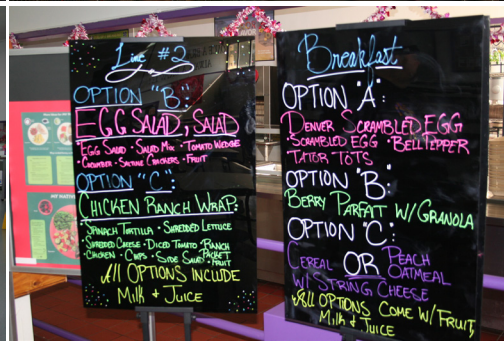 Line #2
OPTION "B":
EGG SALAD, SALAD
·EGG SALAD ·SALAD MIX ·TOMATO WEDGE
·CUCUMBER ·SALTINE CRACKERS ·FRUIT
OPTION "C":
CHICKEN RANCH WRAP:
·SPINACH TORTILLA ·SHREDDED LETTUCE
·SHREDDED CHEESE ·DICED TOMATO ·RANCH PACKET
·CHICKEN ·CHIPS ·SIDE SALAD ·FRUIT
All OPTIONS INCLUDE
MILK & JUICE
Breakfast
OPTION "A":
DENVER SCRAMBLED EGG
·SCRAMBLED EGG ·BELL PEPPER
TATOR TOTS
OPTION "B":
BERRY PARFAIT W/GRANOLA
OPTION "C":
CEREAL OR PEACH OATMEAL
W/ STRING CHEESE
All OPTIONS COME W/FRUIT,
MILK & JUICE